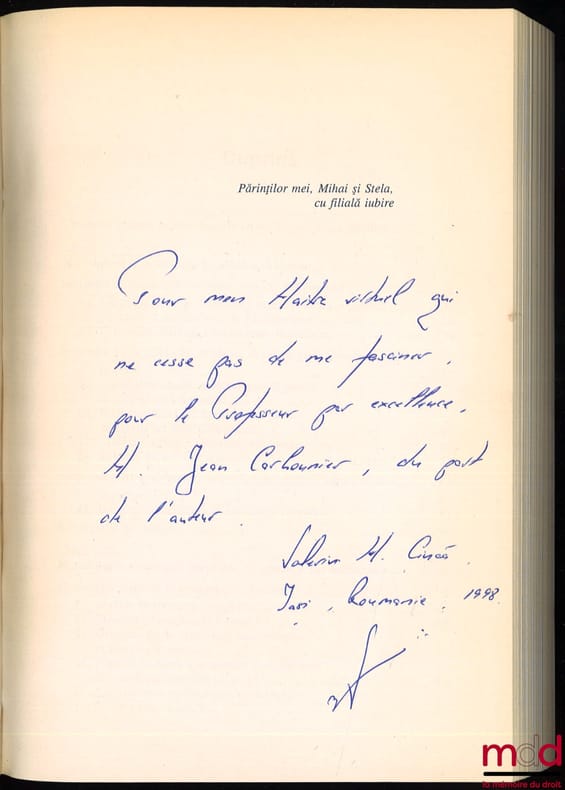 Părinților mei, Mihai și Stela,
cu filială iubire
Pour mon Maitre virtuel qui
ne cesse pas de me fasciner,
pour le Professeur par excellence,
M. Jean Carbonnier, du part
de l'auteur.
Valeriu M. Ciucă
Iași, Roumanie, 1998.
mdd
la mémoire du droit